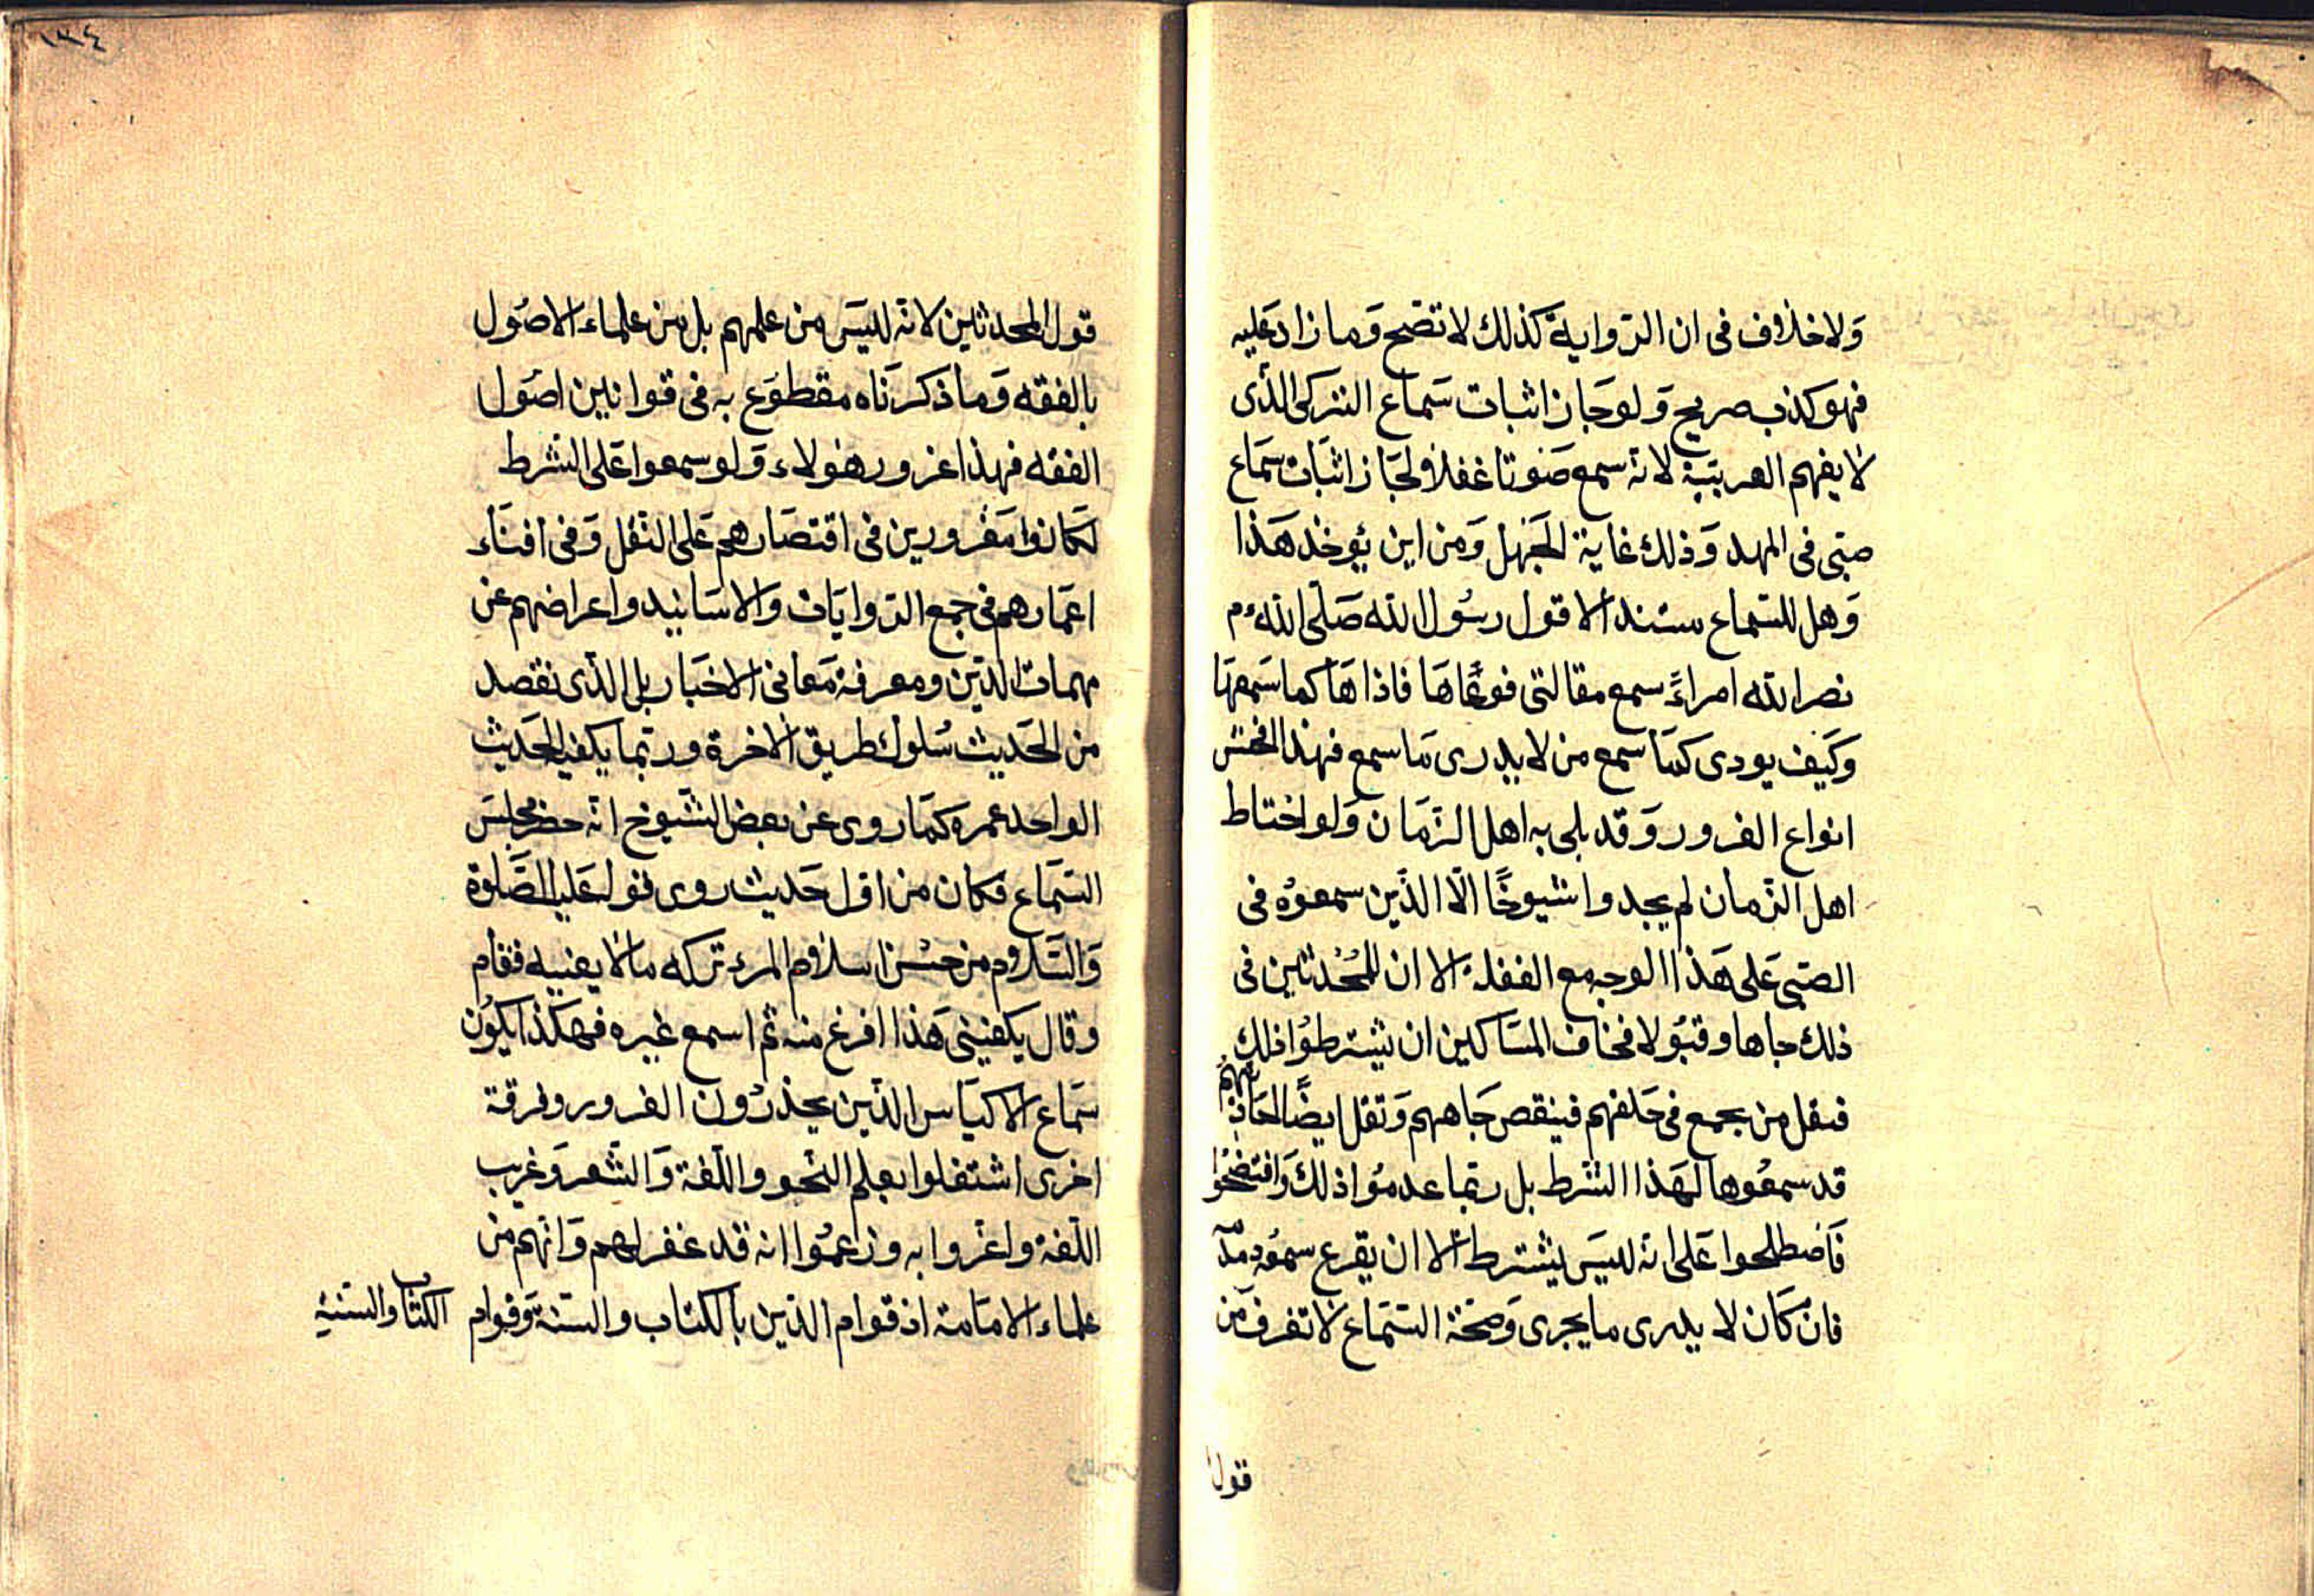 ولا خلاف فى ان الرواية كذلك لا تصح وما زاد عليه
فهو كذب صريح ولو جاز اثبات سماع التركى الذى
لا يفهم العربية لانه سمع صوتا غفلا لجاز اثبات سماع
صبى فى المهد وذلك غاية الجهل ومن اين يؤخذ هذا
وهل للسماع سند الا قول رسول الله صلى الله ءم
نصر الله امراءً سمع مقالتى فوعاها فاداها كما سمعها
وكيف يودى كما سمع من لا يدرى ما سمع فهذا افحش
انواع الغرور وقد بلى به اهل الزمان ولو احتاط
اهل الزمان لم يجدوا شيوخًا الّا الذين سمعوه فى
الصبى على هذا الوجه مع الغفلة الا ان للمحدثين فى
ذلك جاها وقبولا فخاف المساكين ان يشترطوا ذلك
فيقل من يجمع فى حلقهم فينقص جاههم وتقل ايضًا احاديثهم
قد سمعوها لهذا الشرط بل ربما عدموا ذلك وافتضحوا
فاصطلحوا على انه ليس يشترط الا ان يقرع سمعه
فان كان لا يدرى ما يجرى وصحة السماع لا تعرف من
قول
١٣٤
قول المحدثين لانه ليس من علمهم بل من علماء الاصول
بالفقه وما ذكرناه مقطوع به فى قوانين اصول
الفقه فهذا غرور هولاء ولو سمعوا على الشرط
لكانوا مغرورين فى اقتصارهم على النقل وفى افناء
اعمارهم فى جمع الروايات والاسانيد واعراضهم عن
مهمات الدين ومعرفة معانى الاخبار بل الذى نقصد
من الحديث سلوك طريق الاخرة وربما يكفيه الحديث
الواحد عمره كما روى عن بعض الشيوخ انه حضر مجلس
السماع فكان من اول حديث روى قوله عليه الصلوة
والسلام من حسن اسلام المرء تركه مالا يعنيه فقام
وقال يكفينى هذا افرغ منه ثم اسمع غيره فهكذا يكون
سماع الاكياس الذين يحذرون الغرور وفرقة
اخرى اشتغلوا بعلم النحو واللغة والشعر وغريب
اللغة واغروا به وزاعموا انه قد غفر لهم وانهم من
علماء الامامة اذ قوام الدين بالكتاب والسنة وقوام الكتاب والسنة